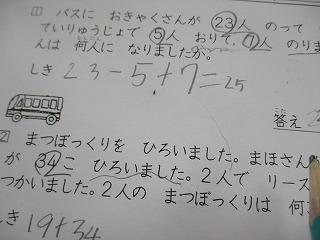 1 バスに おきゃくさんが 23人 のって
ていりゅうじょで 5人 おりて、7人 のりま
んは 何人に なりましたか。
しき 23-5+7=25
答え
2 まつぼっくりを ひろいました。まほさん
が 34こ ひろいました。2人で リース
つかいました。2人の まつぼっくりは 何
しき 19+34